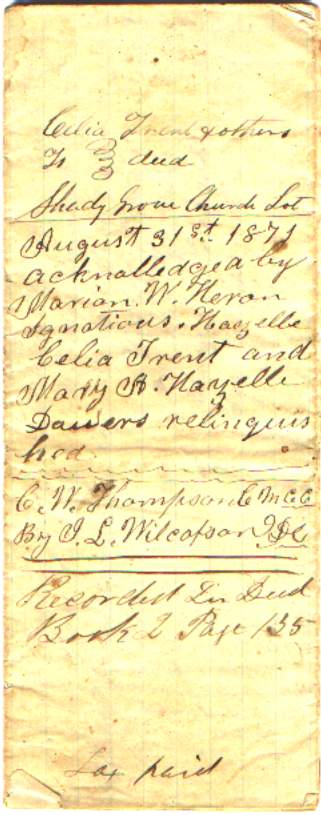 Celia Trent & others
To } deed
Shady Grove Church Lot
August 31st. 1871
acknalledged by
Marian. W. Heron
Ignatious. Hazelle
Celia Trent and
Mary A. Hazelle
Dowers relinquis
hed.
C. W. Thompson C M C C
By I. L. Wilcoxson DC
Recorded In Deed
Book 2 Page 135
Tax paid